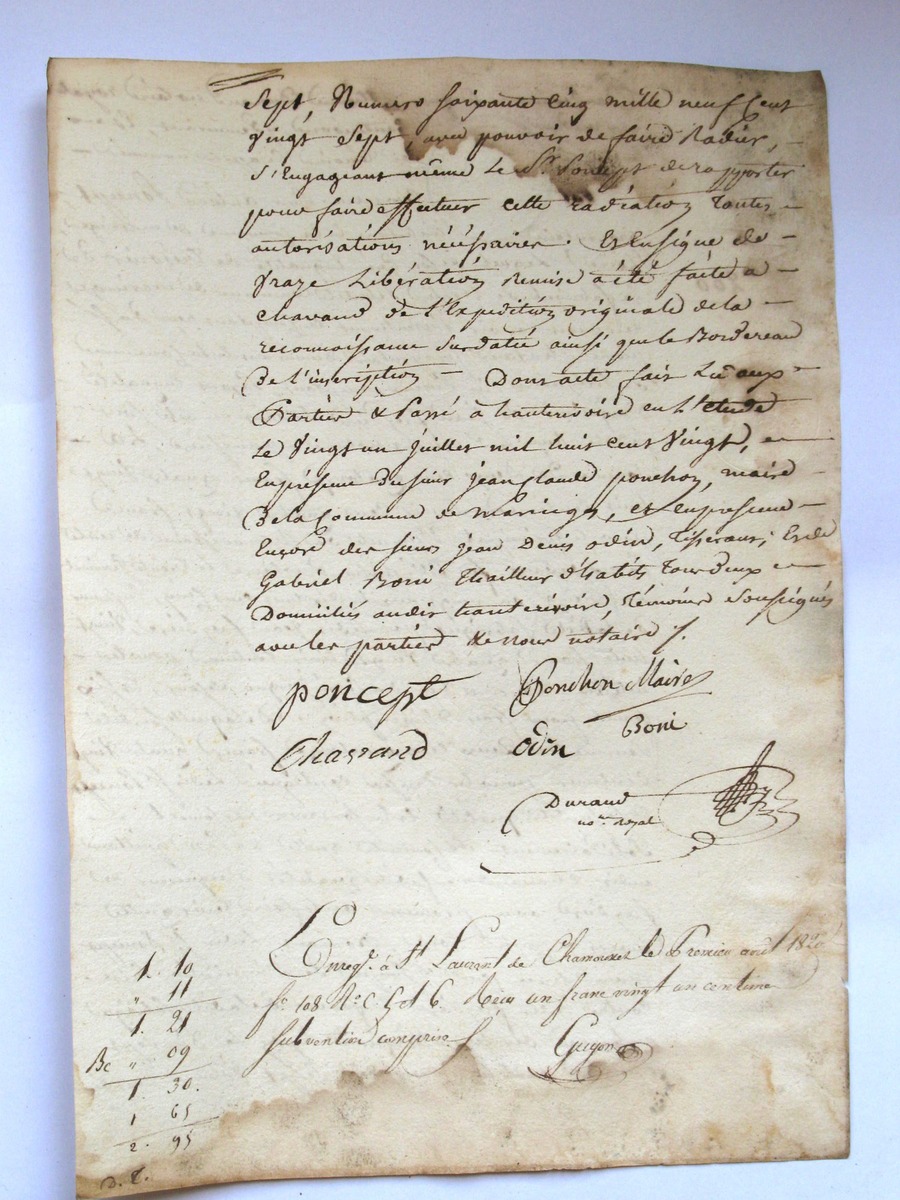 Sept, Numero Soixante Cinq mille neuf Cent
Vingt Sept, avec pouvoir de faire Radier, -
S'Engageant même Le Sr Poncept de rapporter
pour faire effectuer cette radiation Toutes -
autorisations nécéssaires. Et Ensigne de -
Vraye Libération Remise a été faite a -
Chavand de l'Expedition originale de la -
reconnoissance Susdatée ainsi que le Bordereau
De l'inscription - Dont acte fait Lu aux
Parties & Passé à hauterivoire en l'etude
Le Vingt un juillet mil huit cent Vingt, en
En présence du sieur jean Claude ponchon, maire -
De la Commune de Maringes, et En presence -
Encore des sieurs jean Denis odin, Tisserant, Et de
Gabriel Boni Thailleur d'habits Tous deux
Domiciliés audit hauterivoire, Témoins Soussignés
avec les parties & nous notaire ./.
poncept Ponchon Maire
Boni
Chavand Odin
Durand
nore Royal
Enregé. à St Laurent de Chamousset le Premier août 1820
fo 108 Ro C 5 et 6. Reçu un franc vingt un centime
subvention comprise
Guyon
1. 10
" 11
1. 21
Bc " 09
1. 30.
1 65
2. 95
D. T.